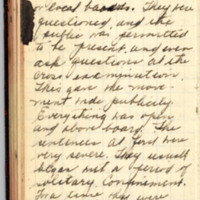 or local boards. They were
questioned, and the
public was permitted
to be present, and even
ask questions at the
cross examination.
This gave the move-
ment wide publicity.
Everything was open
and above board. The
sentences at first were
very severe. They usually
began with a period of
solitary confinement.
For a time they were